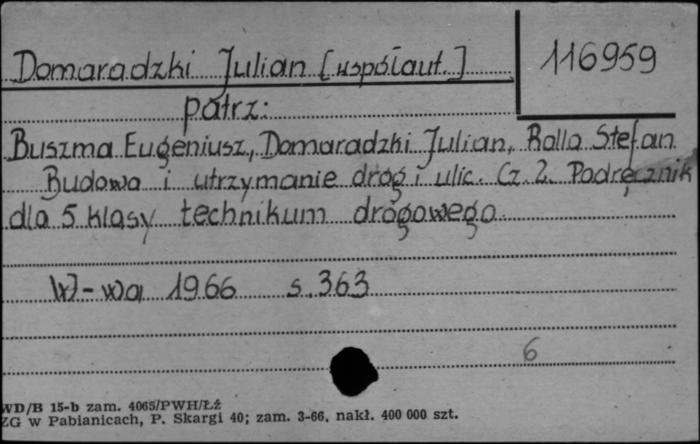 Domaradzki Julian [współaut.]
116959
patrz:
Buszma Eugeniusz, Domaradzki Julian, Rolla Stefan
Budowa i utrzymanie dróg i ulic. Cz. 2. Podręcznik
dla 5 klasy technikum drogowego
W-wa 1966 s. 363
6
WD/B 15-b zam. 4065/PWH/Łź
ZG w Pabianicach, P. Skargi 40; zam. 3-66, nakł. 400 000 szt.